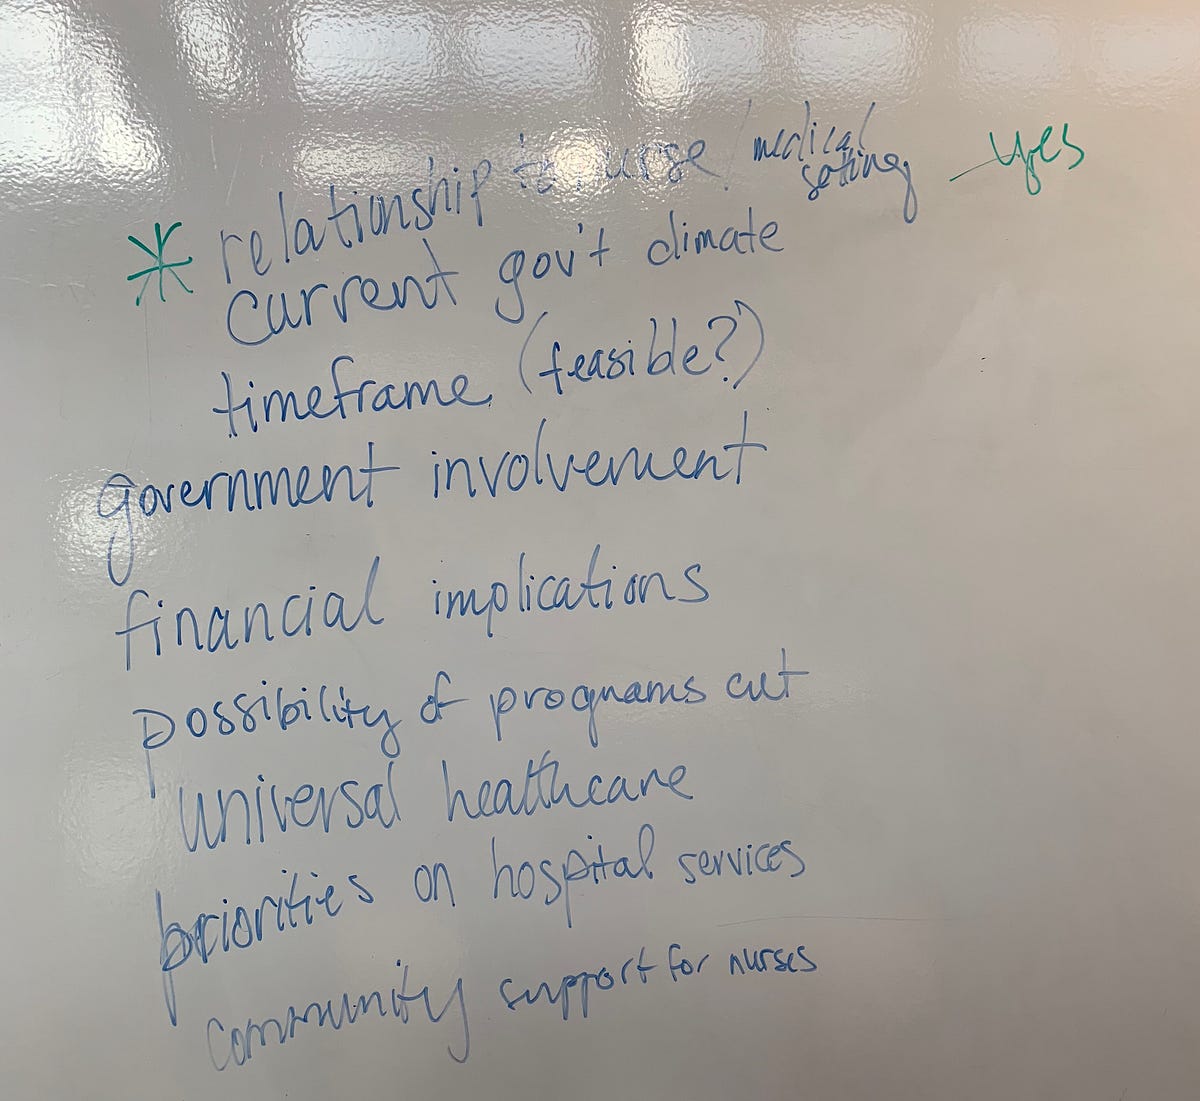 * relationship to nurse / medical setting - yes
current gov't climate
timeframe (feasible?)
government involvement
financial implications
possibility of programs cut
universal healthcare
priorities on hospital services
community support for nurses